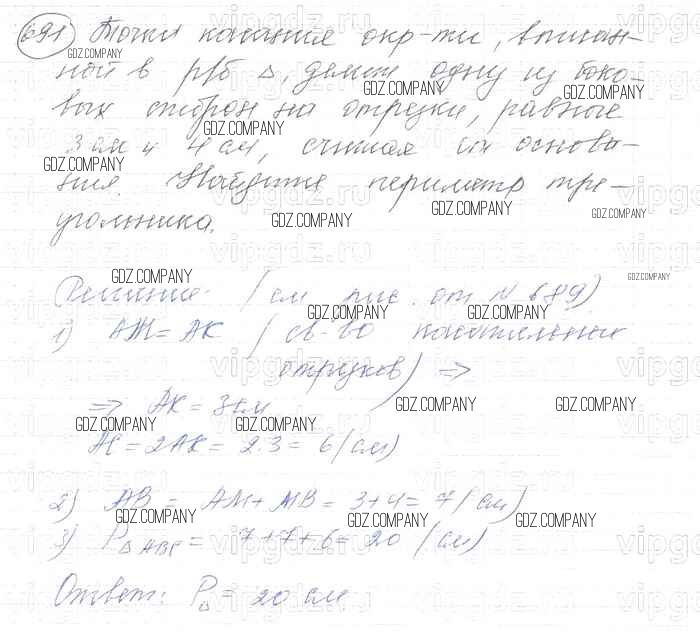 691) Точки касания окр-ти, вписан-
ной в р/б △, делит одну из боко-
вых сторон на отрезки, равные
3 см и 4 см, считая от основа-
ния. Найдите периметр тре-
угольника.
Решение: (см рис. от N 689)
1) АМ = АК (св-во касательных
отрезков) =>
=> АК = 3см
АС = 2АК = 2·3 = 6 (см)
2) АВ = АМ + МВ = 3+4 = 7 (см)
3) P△ABC = 7+7+6 = 20 (см)
Ответ: P△ = 20 см
GDZ.COMPANY
vipgdz.ru